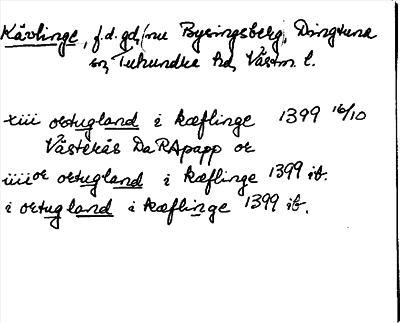 Kävlinge, f.d. gd, (nu Bysingsberg), Dingtuna
sn, Tuhundra hd, Västm. l.
xiii ortugland i kæflinge 1399 16/10
Västerås DaRApapp or
iiiior ortugland i kæflinge 1399 ib.
i ortugland i kæflinge 1399 ib.